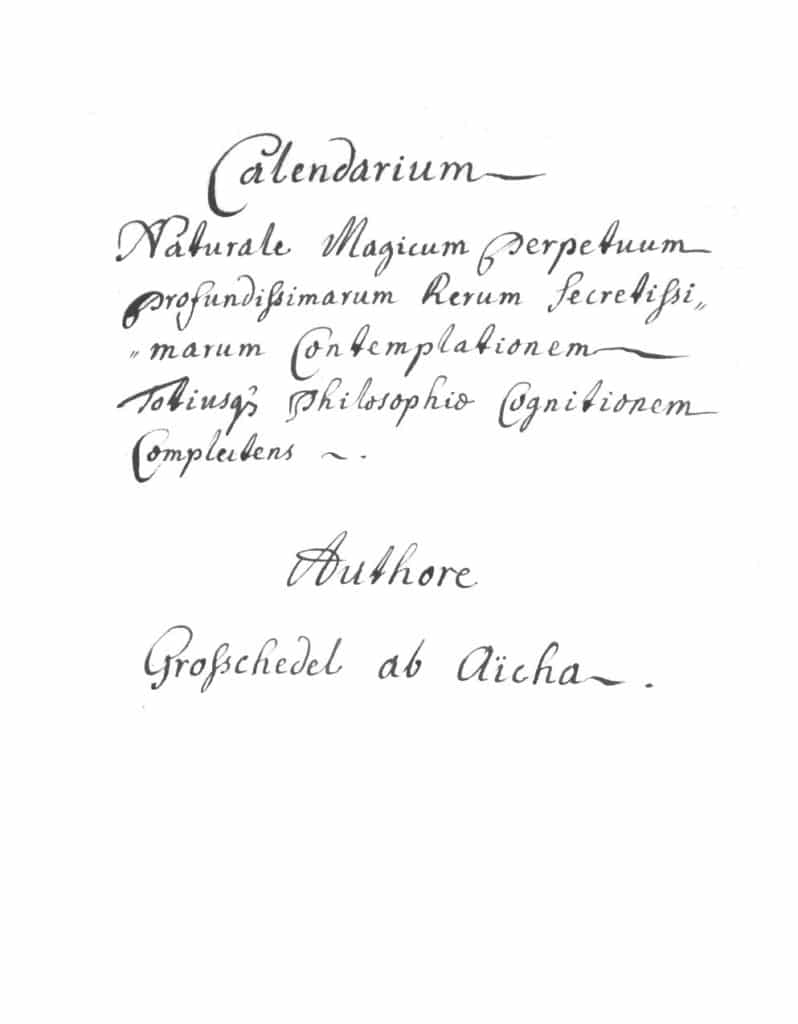 Calendarium
Naturale Magicum Perpetuum
profundissimarum Rerum Secretissi〃
〃marum Contemplationem
Totiusq₃ Philosophiæ Cognitionem
Complectens ~.
Authore
Grosschedel ab Aïcha.